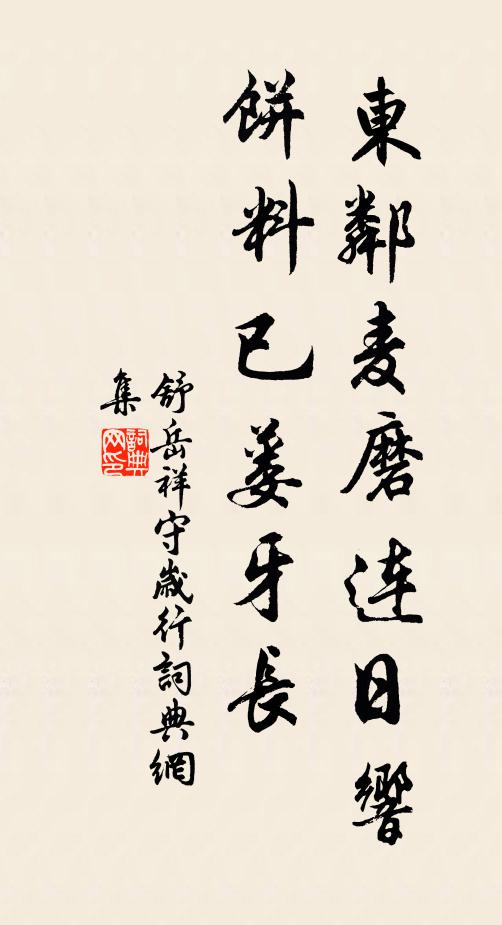 東鄰麦磨连日響
餅料已蒌牙長
舒岳祥守歲行詞典網
集
詞典
网印